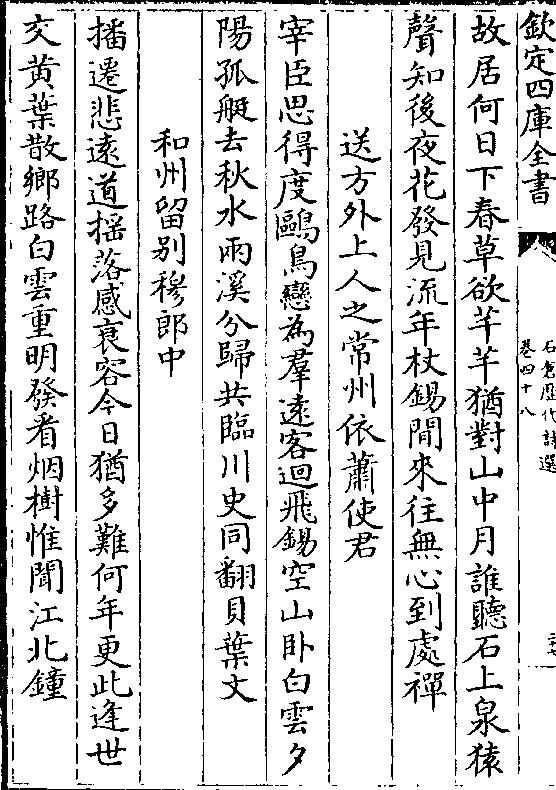 欽定四庫全書
石倉歷代詩選
卷四十八
二十七
故居何日下春草欲芊芊猶對山中月誰聽石上泉猿
聲知後夜花發見流年杖錫閒來往無心到處禪
送方外上人之常州依蕭使君
宰臣思得度鷗鳥戀為羣遠客迴飛錫空山卧白雲夕
陽孤艇去秋水兩溪分歸共臨川史同翻貝葉文
和州留别穆郎中
播遷悲遠道揺落感衰容今日猶多難何年更此逢世
交黄葉散鄉路白雲重明發看烟樹惟聞江北鐘